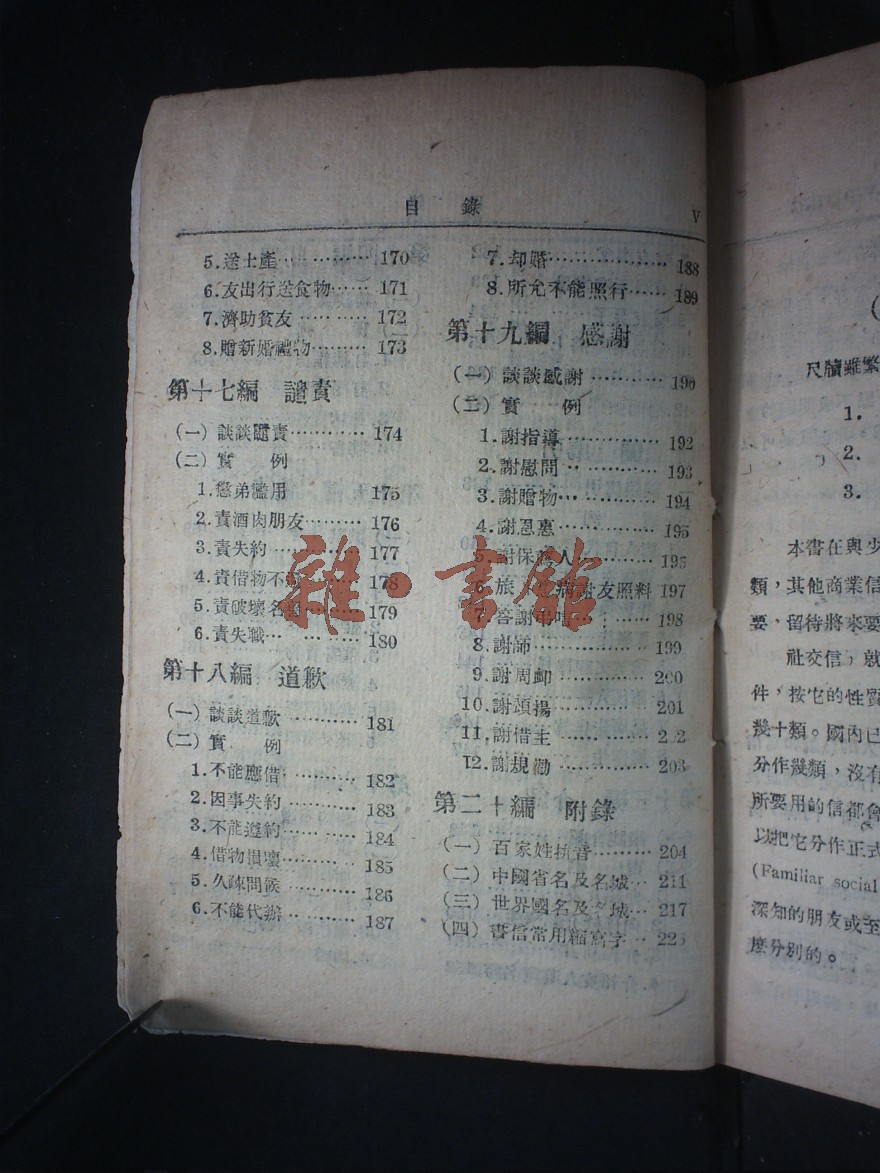 目 錄 V
5.送土產 170
6.友出行送食物 171
7.濟助貧友 172
8.贈新婚禮物 173
第十七編 譴責
(一)談談譴責 174
(二)實 例
1.懲弟濫用 175
2.責酒肉朋友 176
3.責失約 177
4.責借物不 178
5.責破壞名 179
6.責失職 180
第十八編 道歉
(一)談談道歉 181
(二)實 例
1.不能應借 182
2.因事失約 183
3.不能遵約 184
4.借物損壞 185
5.久疎問候 186
6.不能代辦 187
7.却婚 188
8.所允不能照行 189
第十九編 感謝
(一)談談感謝 190
(二)實 例
1.謝指導 192
2.謝慰問 193
3.謝贈物 194
4.謝恩惠 195
5.謝保 人 195
6.旅 病謝友照料 197
7.答謝弔唁 198
8.謝師 199
9.謝周卹 200
10.謝頌揚 201
11.謝借主 2 2
12.謝規勸 203
第二十編 附錄
(一)百家姓拼音 204
(二)中國省名及名城 211
(三)世界國名及名城 217
(四)書信常用縮寫字 225
雜·書館
(
尺牘雖繁
1.
2.
3.
本書在與少
類，其他商業信
要，留待將來要
社交信，就
件，按它的性質
幾十類。國內已
分作幾類，沒有
所要用的信都會
以把它分作正式
(Familiar social
深知的朋友或至
麼分別的。